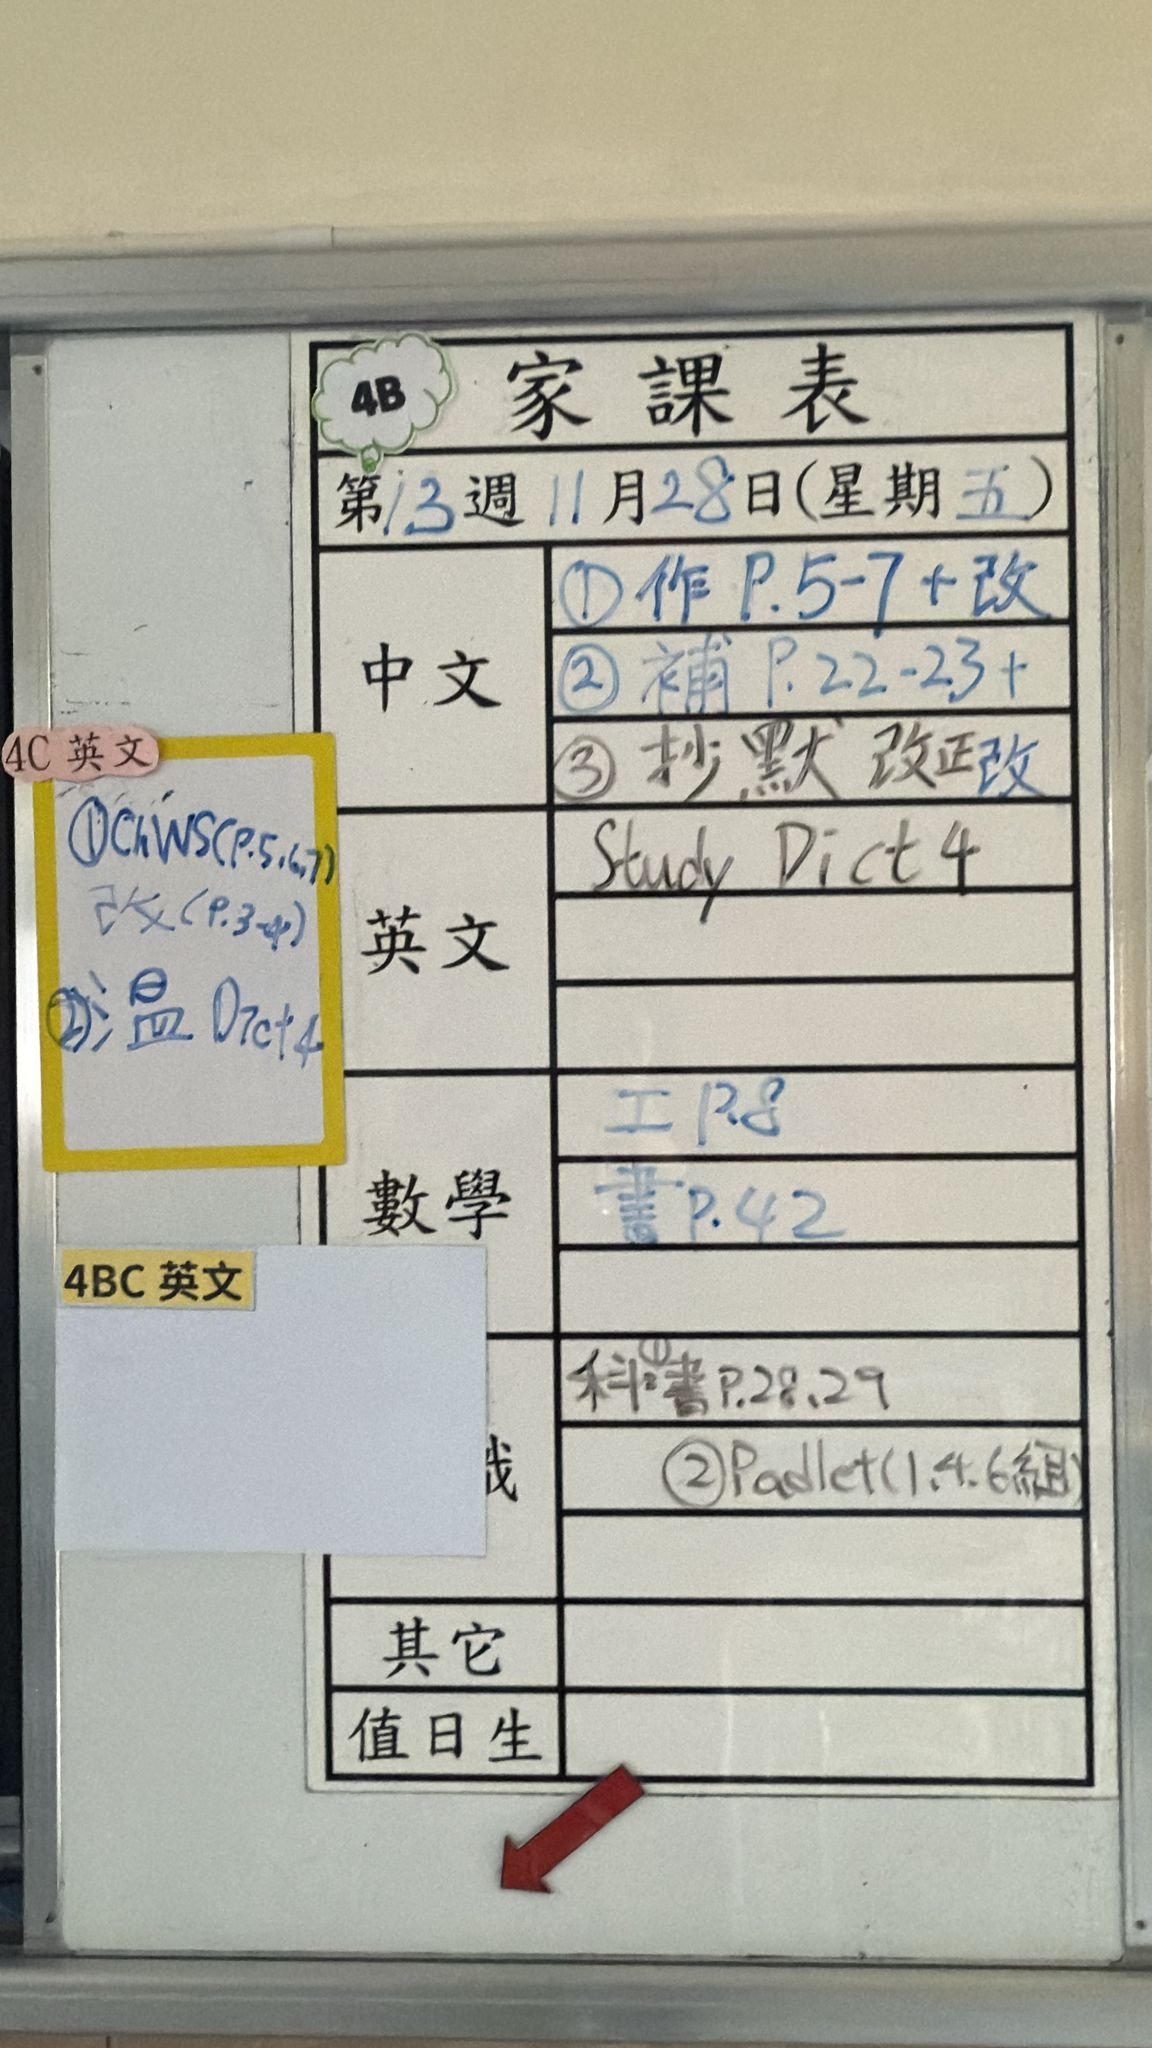 4B
家課表
第13週 11月28日(星期五)
中文
①作 P.5-7+改
②補 P.22-23+
③抄默 改正改
英文
Study Dict 4
數學
工 P.8
書 P.42
科①書 P.28、29
②Padlet(1.4.6組)
其它
值日生
4C 英文
①ChWS(P.5,6,7)
改(P.3-4)
②溫 Dict 4
4BC 英文